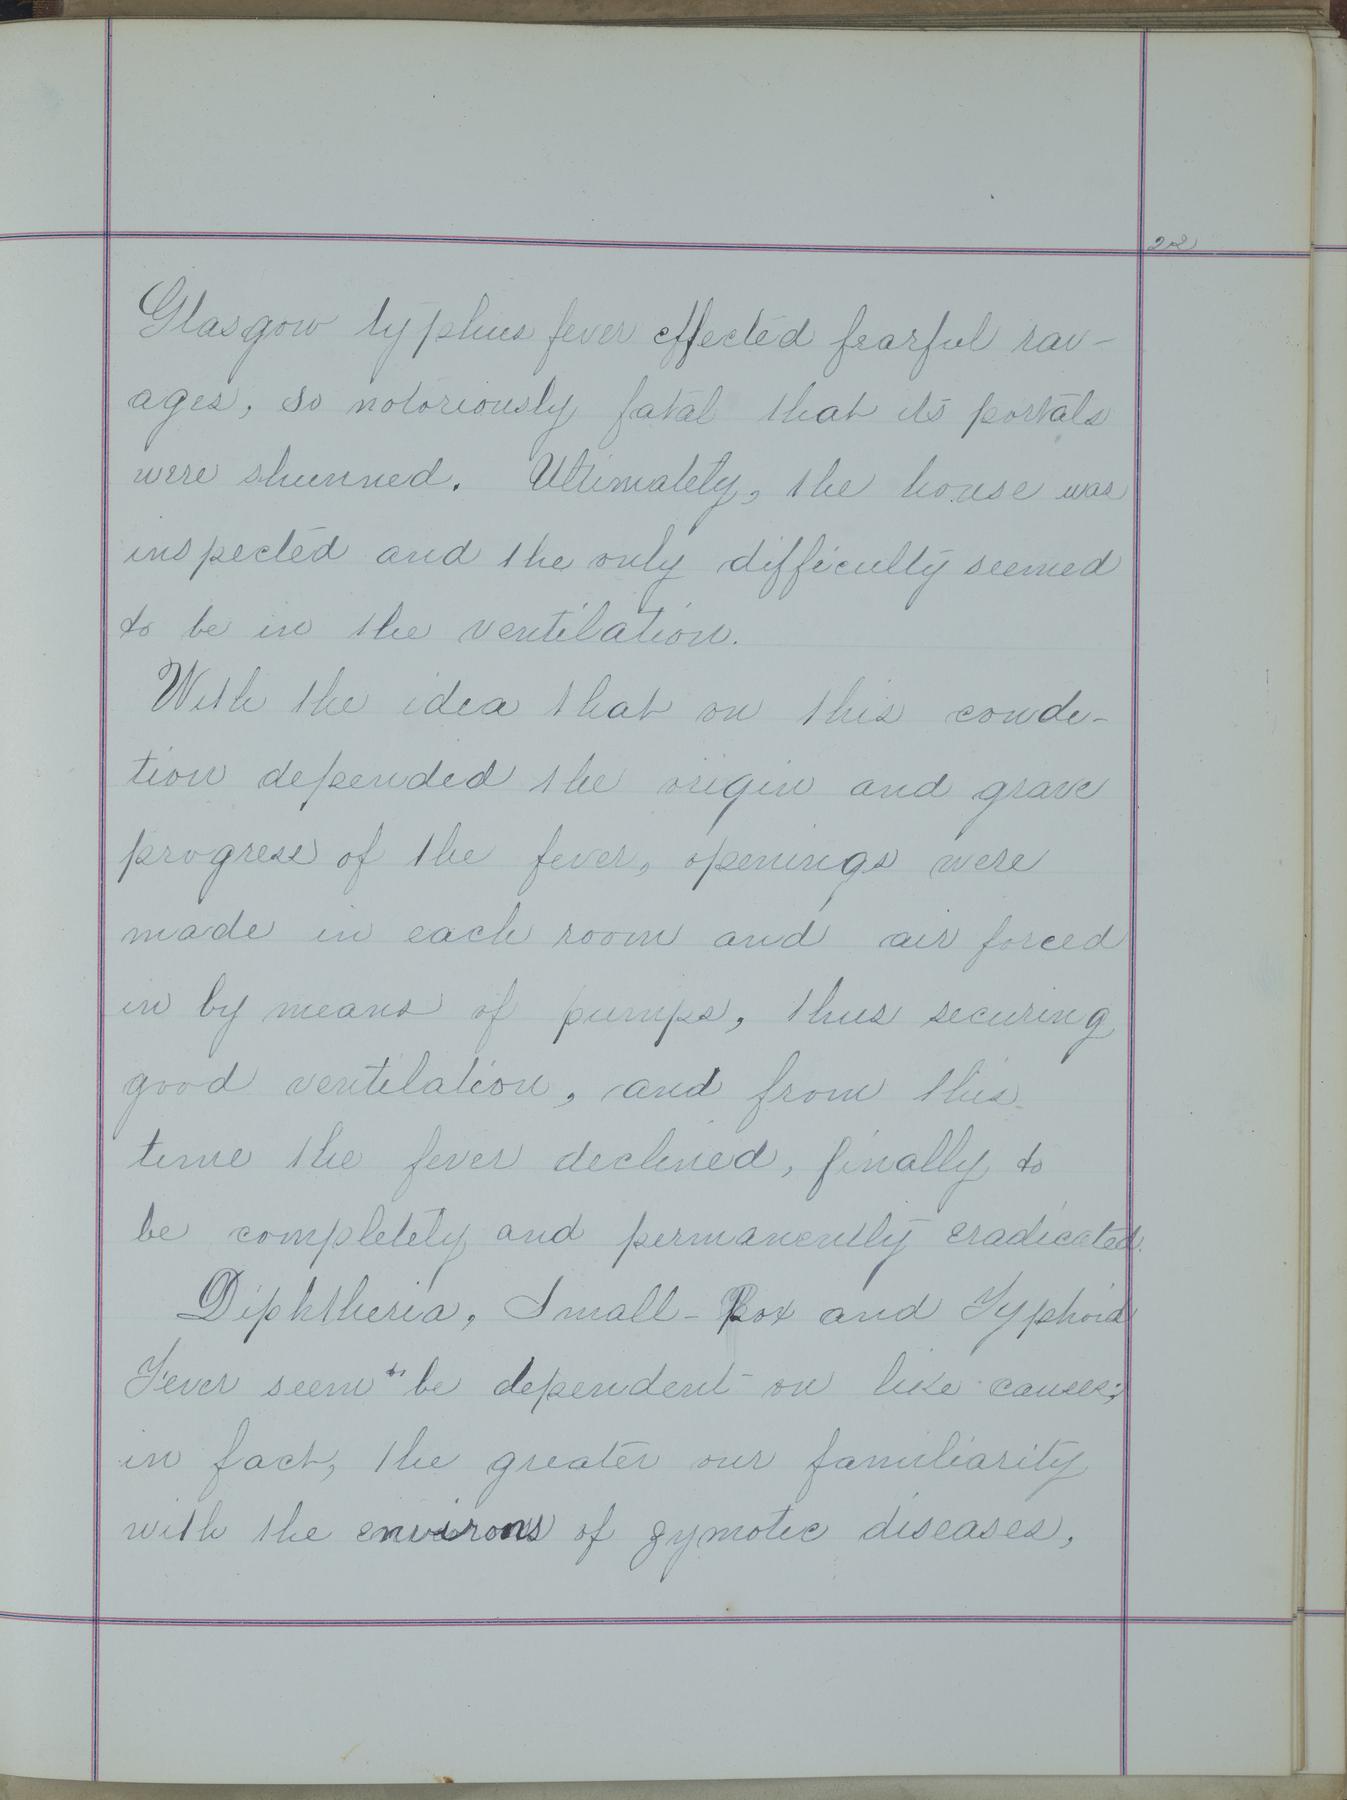 22
Glasgow typhus fever effected fearful rav-
ages, so notoriously fatal that its portals
were shunned. Ultimately, the house was
inspected and the only difficulty seemed
to be in the ventilation.
With the idea that on this condi-
tion depended the origin and grave
progress of the fever, openings were
made in each room and air forced
in by means of pumps, thus securing
good ventilation, and from this
time the fever declined, finally to
be completely and permanently eradicated.
Diphtheria, Small-Pox and Typhoid
Fever seem to be dependent on like causes;
in fact, the greater our familiarity
with the environs of zymotic diseases,